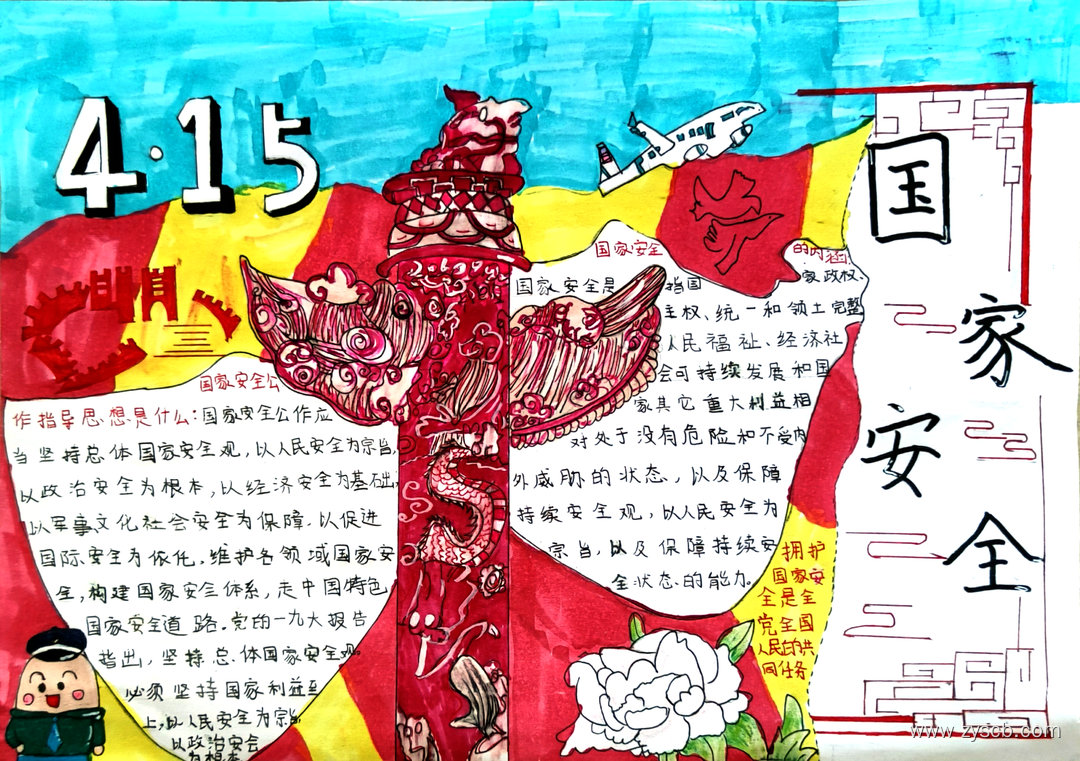 4·15
国家安全
国家安全公
作指导思想是什么：国家安全公作应
当坚持总体国家安全观，以人民安全为宗旨，
以政治安全为根本，以经济安全为基础，
以军事文化社会安全为保障，以促进
国际安全为依托，维护各领域国家安
全，构建国家安全体系，走中国特色
国家安全道路。党的一九大报告
指出，坚持总体国家安全观
必须坚持国家利益至
上，以人民安全为宗旨
以政治安全
为根本
国家安全的内涵
国家安全是指国家政权、
主权、统一和领土完整
人民福祉、经济社
会可持续发展和国
家其它重大利益相
对处于没有危险和不受内
外威胁的状态，以及保障
持续安全观，以人民安全为
宗旨，以及保障持续安
全状态的能力。
拥护
国家安
全是全
党全国
人民的共
同任务
www.zyscb.com